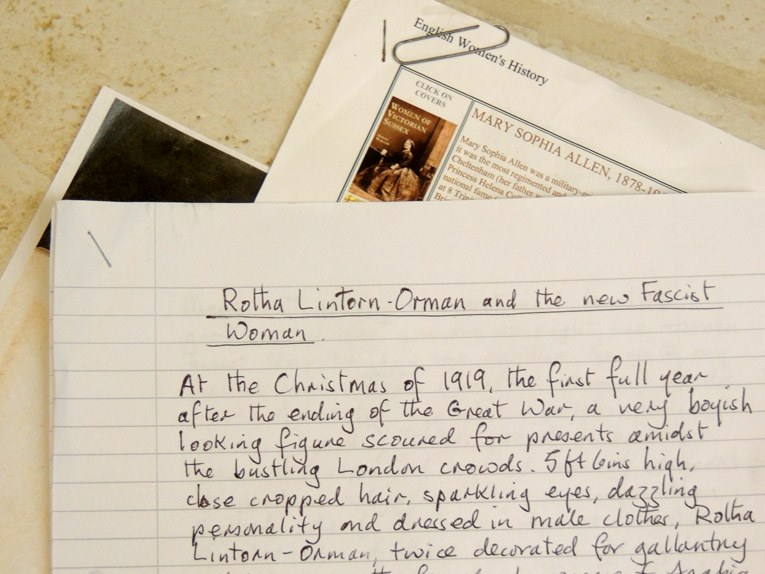 English Women's History
CLICK ON
COVERS
WOMEN OF
VICTORIAN
SUSSEX
MARY SOPHIA ALLEN, 1878-19
Mary Sophia Allen was a military-m
it was the most regimented and
Cheltenham (her father w
Princess Helena Co
national fame
at 8 Trin
Bri
Rotha Lintorn-Orman and the new Fascist
Woman.
At the Christmas of 1919, the first full year
after the ending of the Great War, a very boyish
looking figure scoured for presents amidst
the bustling London crowds. 5ft 6ins high,
close cropped hair, sparkling eyes, dazzling
personality and dressed in male clothes, Rotha
Lintorn-Orman, twice decorated for gallantry